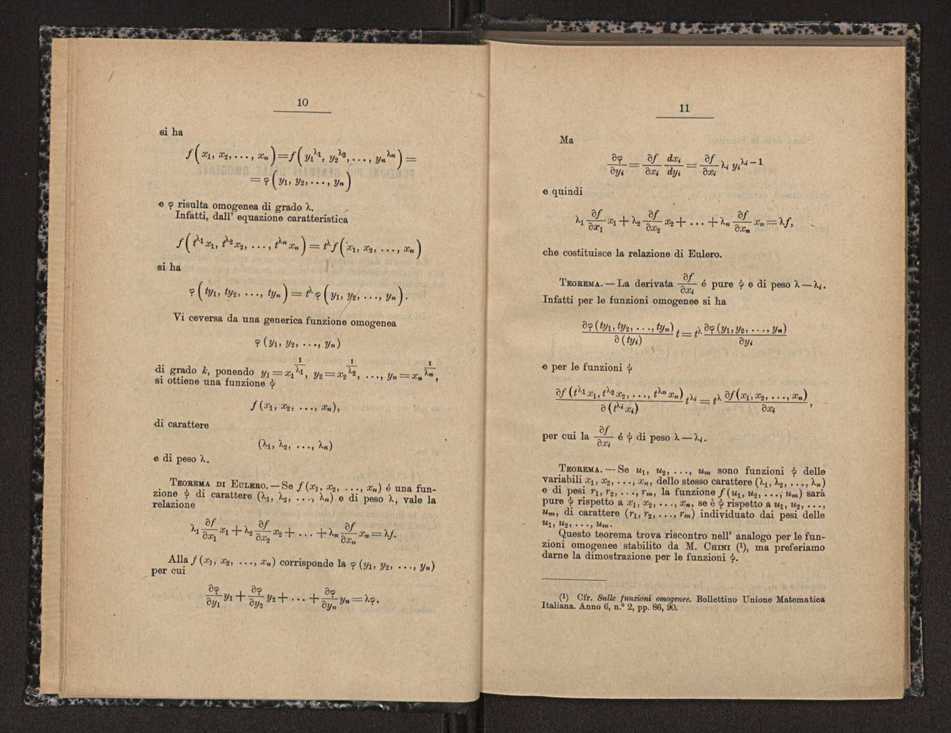 10
si ha
f(x₁, x₂, . . . , xₙ) = f(y₁^λ₁, y₂^λ₂, . . . , yₙ^λₙ) =
= φ(y₁, y₂, . . . , yₙ)
e φ risulta omogenea di grado λ.
Infatti, dall' equazione caratteristica
f(t^λ₁ x₁, t^λ₂ x₂, . . . , t^λₙ xₙ) = t^λ f(x₁, x₂, . . . , xₙ)
si ha
φ(ty₁, ty₂, . . . , tyₙ) = t^λ φ(y₁, y₂, . . . , yₙ).
Vi ceversa da una generica funzione omogenea
φ (y₁, y₂, . . . , yₙ)
di grado k, ponendo y₁ = x₁^(1/λ₁), y₂ = x₂^(1/λ₂), . . . , yₙ = xₙ^(1/λₙ),
si ottiene una funzione ψ
f (x₁, x₂, . . . , xₙ),
di carattere
(λ₁, λ₂, . . . , λₙ)
e di peso λ.
TEOREMA DI EULERO. — Se f (x₁, x₂, . . . , xₙ) é una fun-
zione ψ di carattere (λ₁, λ₂, . . . , λₙ) e di peso λ, vale la
relazione
λ₁ ∂f/∂x₁ x₁ + λ₂ ∂f/∂x₂ x₂ + . . . + λₙ ∂f/∂xₙ xₙ = λf.
Alla f (x₁, x₂, . . . , xₙ) corrisponde la φ (y₁, y₂, . . . , yₙ)
per cui
∂φ/∂y₁ y₁ + ∂φ/∂y₂ y₂ + . . . + ∂φ/∂yₙ yₙ = λφ.
11
Ma
∂φ/∂yᵢ = ∂f/∂xᵢ dxᵢ/dyᵢ = ∂f/∂xᵢ λᵢ yᵢ^(λᵢ − 1)
e quindi
λ₁ ∂f/∂x₁ x₁ + λ₂ ∂f/∂x₂ x₂ + . . . + λₙ ∂f/∂xₙ xₙ = λf,
che costituisce la relazione di Eulero.
TEOREMA. — La derivata ∂f/∂xᵢ é pure ψ e di peso λ — λᵢ.
Infatti per le funzioni omogenee si ha
∂φ (ty₁, ty₂, . . . , tyₙ)/∂ (tyᵢ) t = t^λ ∂φ (y₁, y₂, . . . , yₙ)/∂yᵢ
e per le funzioni ψ
∂f (t^λ₁ x₁, t^λ₂ x₂, . . . , t^λₙ xₙ)/∂ (t^λᵢ xᵢ) t^λᵢ = t^λ ∂f(x₁, x₂, . . . , xₙ)/∂xᵢ,
per cui la ∂f/∂xᵢ é ψ di peso λ — λᵢ.
TEOREMA. — Se u₁, u₂, . . . , uₘ sono funzioni ψ delle
variabili x₁, x₂, . . . , xₙ, dello stesso carattere (λ₁, λ₂, . . . , λₙ)
e di pesi r₁, r₂, . . . , rₘ, la funzione f (u₁, u₂, . . . , uₘ) sará
pure ψ rispetto a x₁, x₂, . . . , xₙ, se è ψ rispetto a u₁, u₂, . . . ,
uₘ, di carattere (r₁, r₂, . . . , rₘ) individuato dai pesi delle
u₁, u₂, . . . , uₘ.
Questo teorema trova riscontro nell' analogo per le fun-
zioni omogenee stabilito da M. CHINI (¹), ma preferiamo
darne la dimostrazione per le funzioni ψ.
(¹) Cfr. Sulle funzioni omogenee. Bollettino Unione Matematica
Italiana. Anno 6, n.º 2, pp. 86, 90.